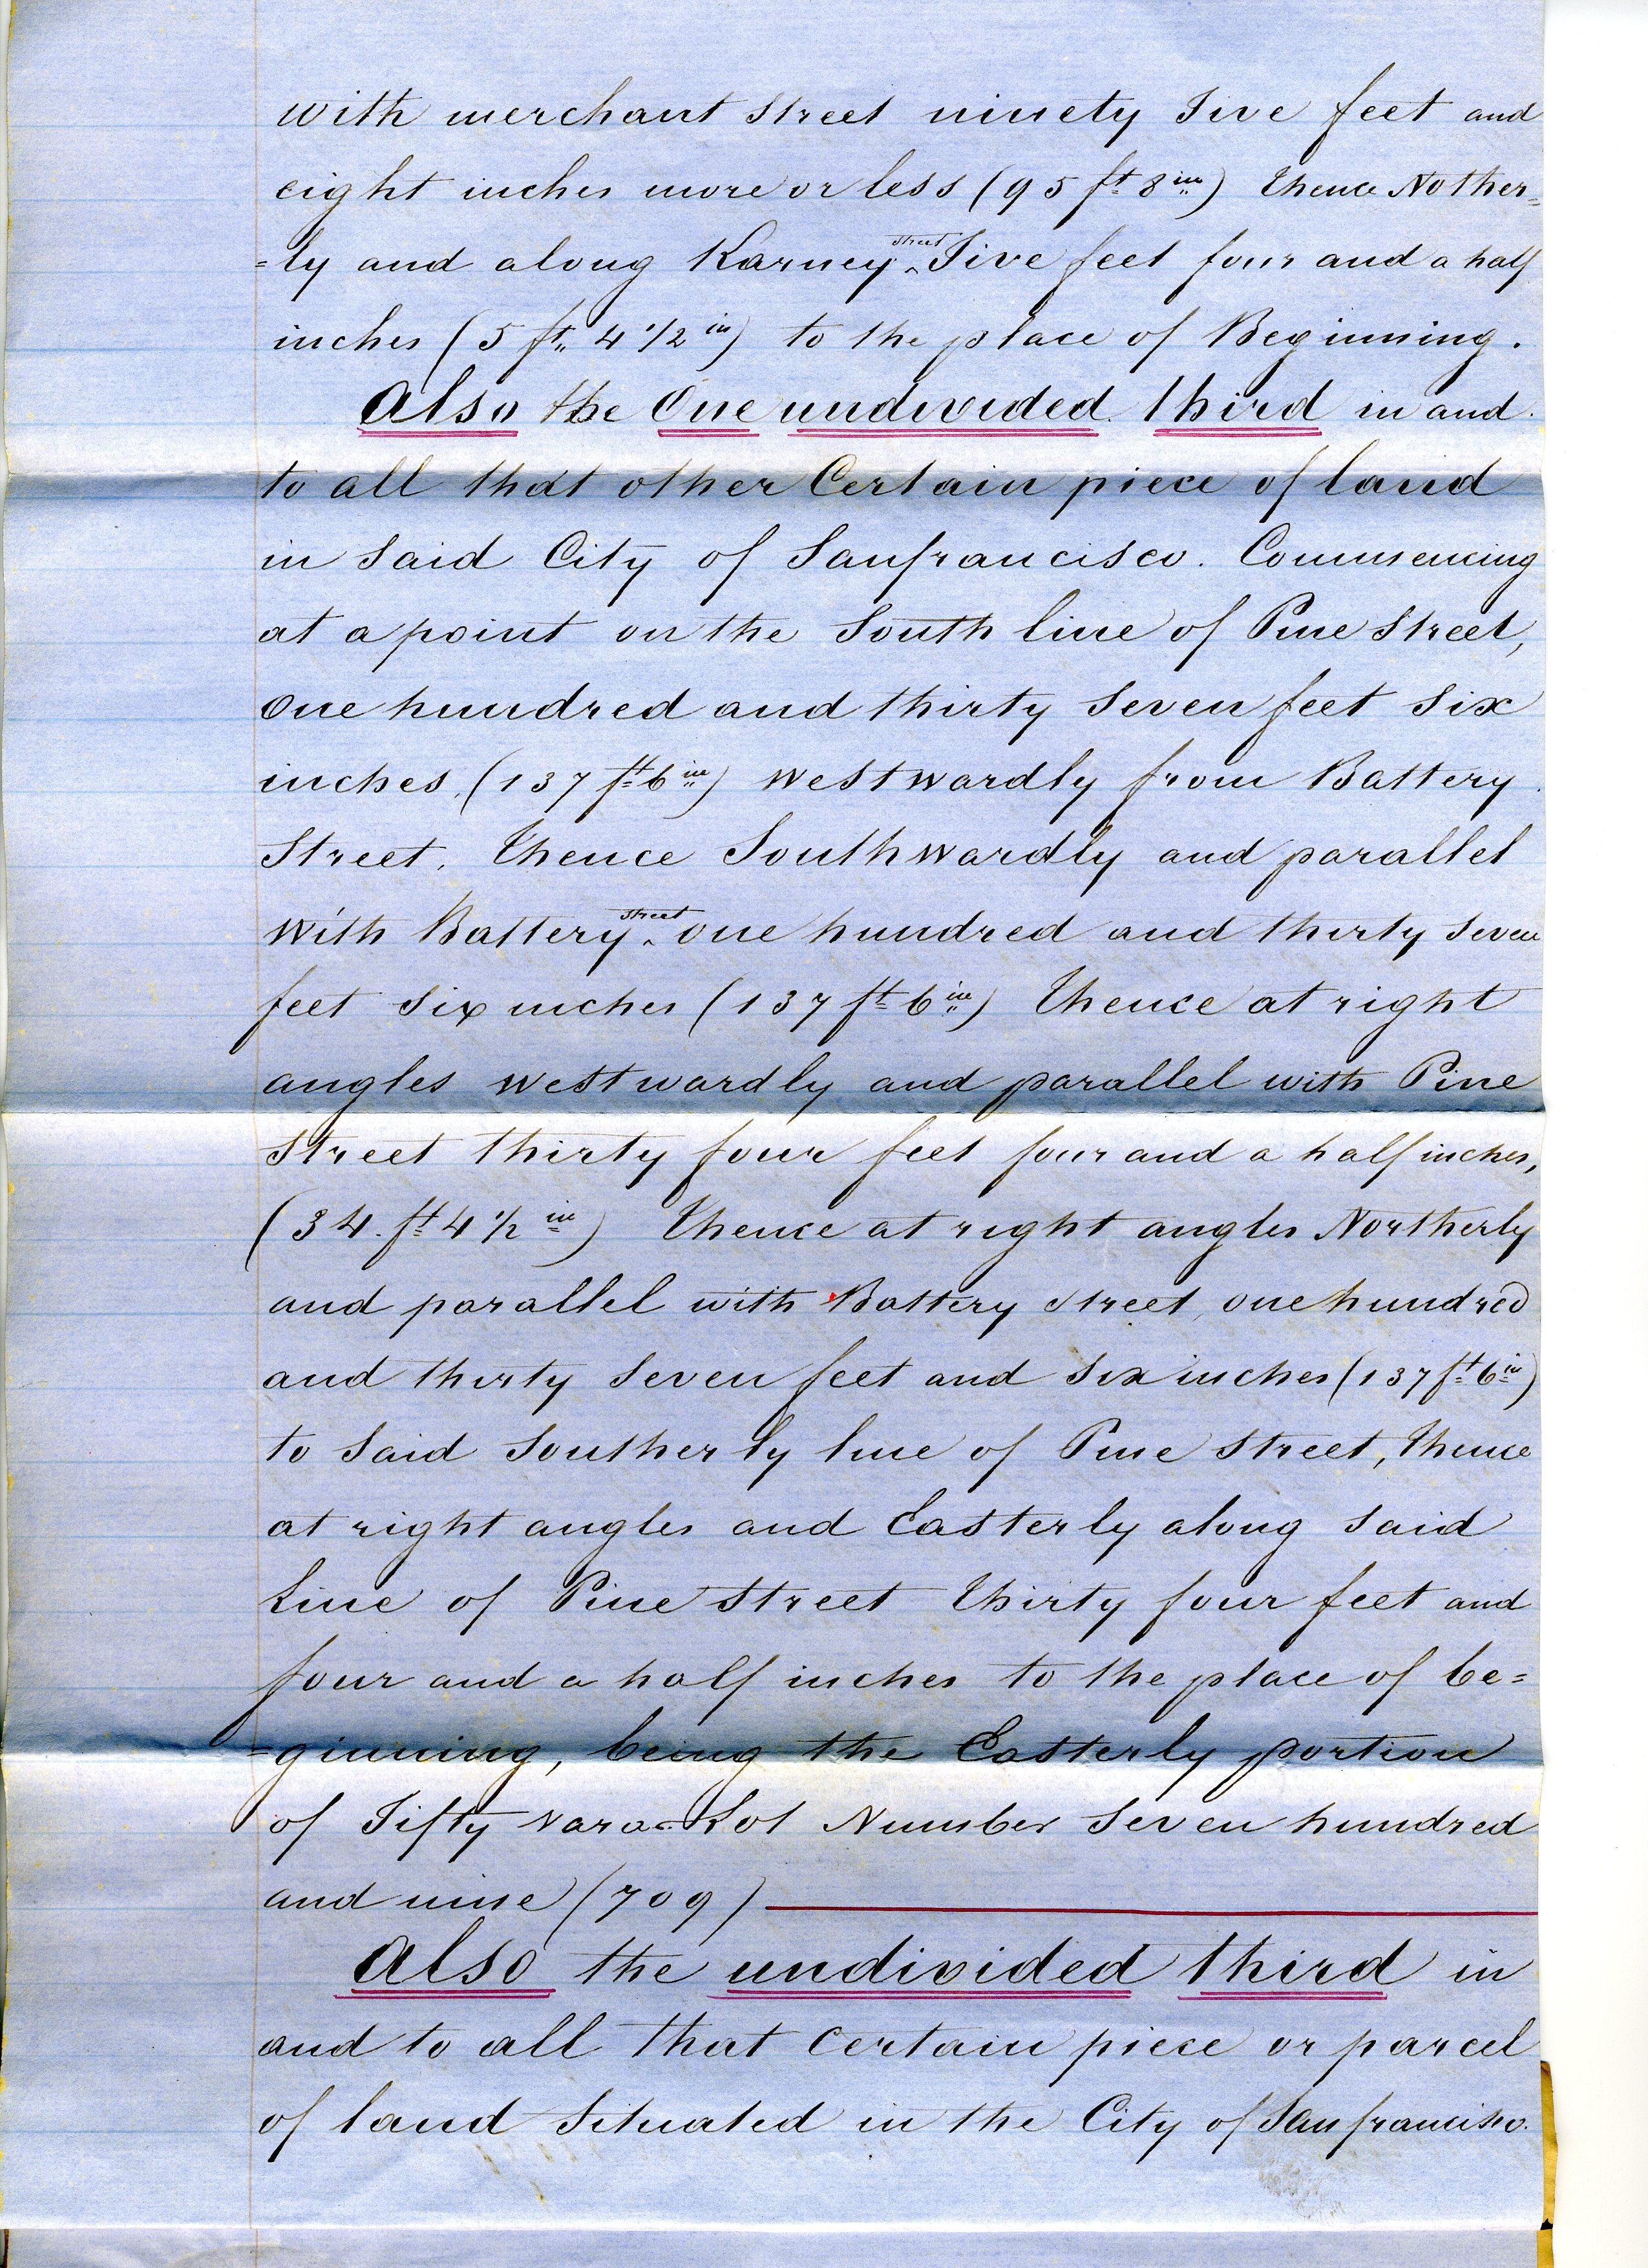 with merchant street ninety Five feet and
eight inches more or less (95 ft 8 in) Thence Nother=
=ly and along Karney street Five feet four and a half
inches (5 ft 4 1/2 in) to the place of Beginning.
Also the One undivided third in and
to all that other Certain piece of land
in said City of Sanfrancisco. Commencing
at a point on the South line of Pine Street,
One hundred and thirty seven feet six
inches, (137 ft 6 in) westwardly from Battery
Street, Thence Southwardly and parallel
with Battery street one hundred and thirty seven
feet six inches (137 ft 6 in) Thence at right
angles westwardly and parallel with Pine
street thirty four feet four and a half inches,
(34. ft 4 1/2 in) Thence at right angles Northerly
and parallel with Battery street, one hundred
and thirty seven feet and six inches (137 ft 6 in)
to said Southerly line of Pine street, Thence
at right angles and Easterly along said
Line of Pine Street Thirty four feet and
four and a half inches to the place of be=
=ginning, being the Easterly portion
of Fifty Vara Lot Number Seven hundred
and nine (709)
Also the undivided third in
and to all that certain piece or parcel
of land situated in the City of San francisco.